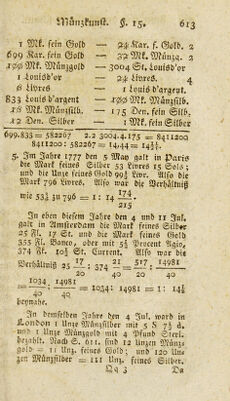 Münzkunst. §. 15. 613
1 Mk. fein Gold — 24 Kar. f. Gold. 2
699 Kar. fein Gold — Mk. Münzg. 2
Mk. Münzgold — 3004 St. Louisd'or
1 Louisd'or — 24 Livres. 4
6 Livres — 1 Louis d'argent.
833 Louis d'argent — Mk. Münzsilb.
Mk. Münzsilb. — 175 Den. fein Silb.
12 Den. Silber — 1 Mk. fein Silber
699.833 = 582267 2.2 3004.4.175 = 8411200
8411200: 582267 = 14/44 =
5. Im Jahre 1777 den 5 May galt in Paris
die Mark feines Silber 53 Livres 15 Sols;
und die Unze feines Gold 99½ Livr. Also die
Mark 796 Livres. Also war die Verhältniß
wie 53¾ zu 796 = 1: 14 174/215.
In eben diesem Jahre den 4 und 11 Jul.
galt in Amsterdam die Mark feines Silber
25 Fl. 17 St. und die Mark feines Gold
355 Fl. Banco, oder mit Procent Agio,
374 Fl. St. Current. Also war die
Verhältniß 25 17/20 : 374 21/40 = 517/20 : 14981/40
= 1034/40 : 14981/40 = 1034: 14981 = 1:
beynahe.
In demselben Jahre den 4 Jul. ward in
London 1 Unze Münzsilber mit 5 S d.
und 1 Unze Münzgold mit 4 Pfund Sterl.
bezahlt. Nach S. 611. sind 12 Unzen Münz-
gold = 11 Unz. feines Gold; und 120 Un-
zen Münzsilber = 111 Unz. feines Silber.
Qq 3 Da